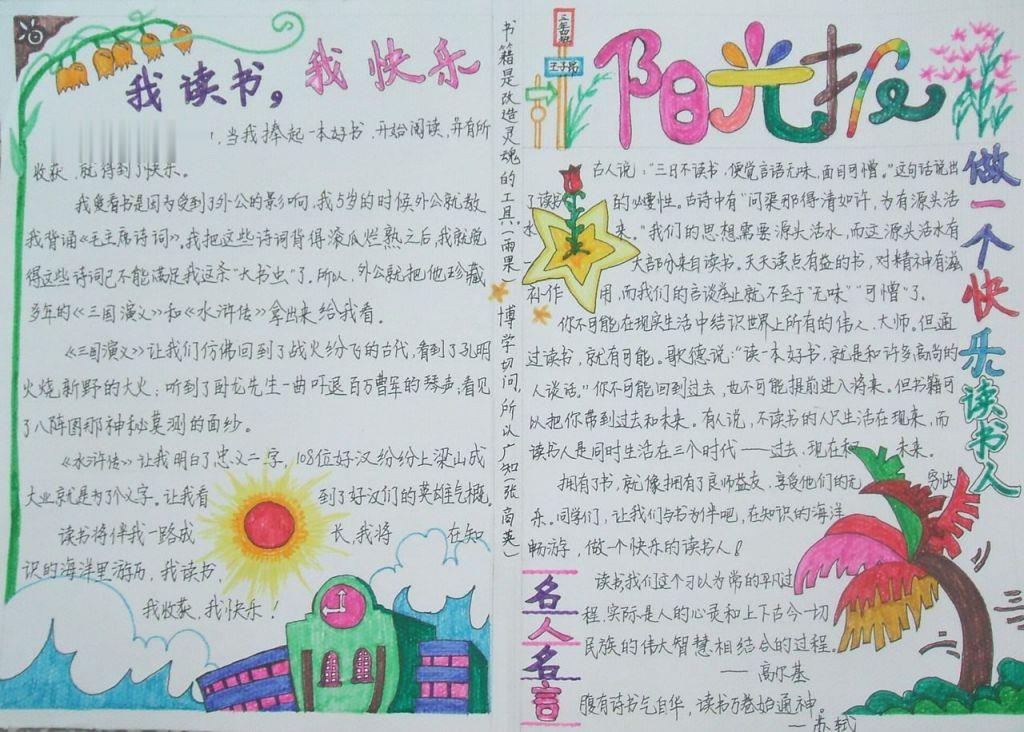 我读书，我快乐
！当我捧起一本好书，开始阅读，并有所
收获，就得到了快乐。
我爱看书是因为受到了外公的影响，我5岁的时候外公就教
我背诵《毛主席诗词》，我把这些诗词背得滚瓜烂熟之后，我就觉
得这些诗词已不能满足我这条“大书虫”了，所以，外公就把他珍藏
多年的《三国演义》和《水浒传》拿出来给我看。
《三国演义》让我们仿佛回到了战火纷飞的古代，看到了孔明
火烧新野的大火；听到了卧龙先生一曲吓退百万曹军的琴声；看见
了八阵图那神秘莫测的面纱。
《水浒传》让我明白了忠义二字，108位好汉纷纷上梁山成
大业就是为了个义字。让我看到了好汉们的英雄气概。
读书将伴我一路成长，我将在知
识的海洋里游历，我读书，
我收获，我快乐！
书籍是改造灵魂的工具（雨果）
博学切问，所以广知（张高英）
三年四班
王子昂
阳光报
做一个快乐读书人
古人说：“三日不读书，便觉言语无味，面目可憎。”这句话说出
了读书的必要性。古诗中有“问渠那得清如许，为有源头活
水来。”我们的思想需要源头活水，而这源头活水有
大部分来自读书。天天读点有益的书，对精神有滋
补作用，而我们的言谈举止就不至于“无味”“可憎”了。
你不可能在现实生活中结识世界上所有的伟人、大师。但通
过读书，就有可能。歌德说：“读一本好书，就是和许多高尚的
人谈话。”你不可能回到过去，也不可能提前进入将来。但书籍可
以把你带到过去和未来。有人说，不读书的人只生活在现来，而
读书人是同时生活在三个时代——过去、现在和未来。
拥有了书，就像拥有了良师益友，享受他们的无穷快
乐。同学们，让我们与书为伴吧，在知识的海洋
畅游，做一个快乐的读书人！
名人名言
读书，我们这个习以为常的平凡过
程，实际是人的心灵和上下古今一切
民族的伟大智慧相结合的过程。
——高尔基
腹有诗书气自华，读书万卷始通神。
——苏轼